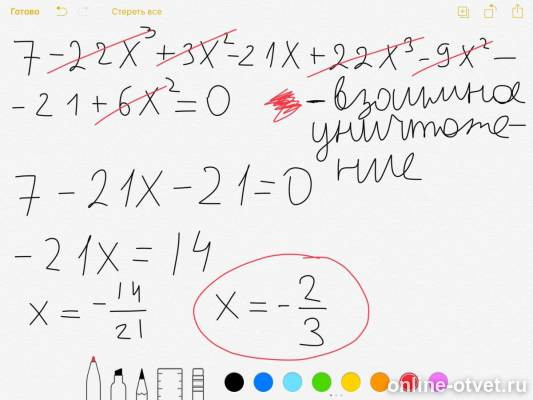 Готово Стереть все
7 - 22x³ + 3x² - 21x + 22x³ - 9x² -
- 21 + 6x² = 0 - взаимное
уничтоже-
ние
7 - 21x - 21 = 0
- 21x = 14
x = - 14/21 x = - 2/3
online-otvet.ru